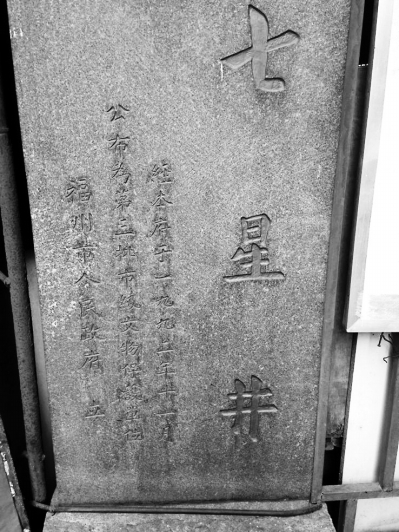 七星井
經本府于一九九二年十一月
公布为第三批市級文物保護單位
福州市人民政府 立